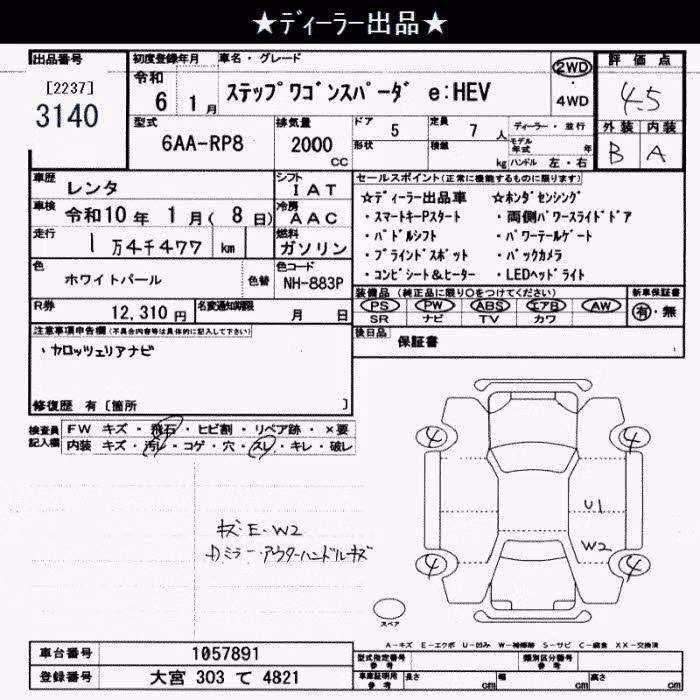 ★ディーラー出品★
出品番号
[2237]
3140
初度登録年月
令和
6 1月
車名・グレード
ステップワゴンスパーダ e:HEV
2WD
・
4WD
評価点
4.5
外装 内装
B A
型式
6AA-RP8
排気量
2000
CC
ドア 5
形状
定員 7 人
積載 kg
ディーラー・並行
モデル年式 年
ハンドル 左・右
車歴 レンタ
シフト IAT
車検 令和10年 1月(8日)
冷房 AAC
走行 1万4千477 km
燃料 ガソリン
色 ホワイトパール 色替
色コード NH-883P
R券 12,310円
名変通知期限 月 日
セールスポイント(正常に機能するものに限ります)
☆ディーラー出品車 ☆ホンダセンシング
・スマートキーPスタート ・両側パワースライドドア
・パドルシフト ・パワーテールゲート
・ブラインドスポット ・バックカメラ
・コンビシート&ヒーター ・LEDヘッドライト
装備品(純正品に限り○をつけてください)
PS PW ABS エアB AW
SR ナビ TV カワ
新車保証書
有・無
後日品 保証書
注意事項申告欄(不具合内容等は具体的に記入して下さい)
・カロッツェリアナビ
修復歴 有〔箇所 〕
検査員記入欄
FW キズ・飛石・ヒビ割・リペア跡・×要
内装 キズ・汚レ・コゲ・穴・スレ・キレ・破レ
キズ・E・W2
ミラー・アウターハンドルキズ
4 4
U1
W2
4 4
スペア
A-キズ E-エクボ U-凹み W-補修跡 S-サビ C-腐食 XX-交換済
車台番号 1057891
登録番号 大宮 303 て 4821
型式指定番号 参考
類別区分番号 参考
車庫証明用 参考
長さ cm 幅 cm 高さ cm